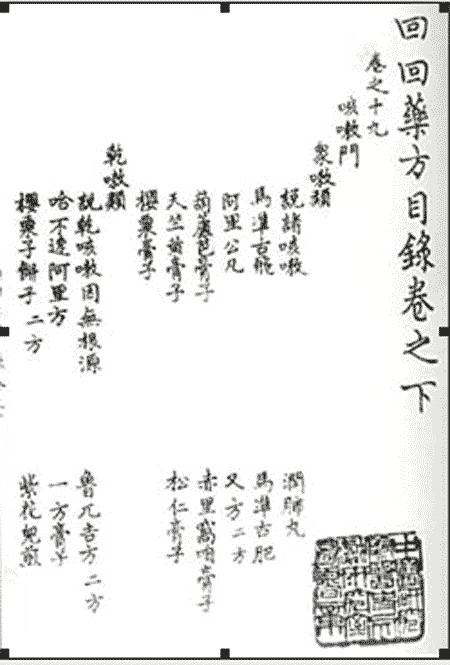 回回藥方目錄卷之下
卷之十九
咳嗽門
衆嗽類
說諸咳嗽 潤肺丸
馬準古飛 馬準古肥
阿里公凡 又方二方
葫蘆芭膏子 赤里窩咱膏子
天竺黃膏子 松仁膏子
櫻粟膏子
乾嗽類
說乾咳嗽因無根源 魯兀吉方二方
哈不達阿里方 一方膏子
櫻粟子餅子二方 紫花兒煎